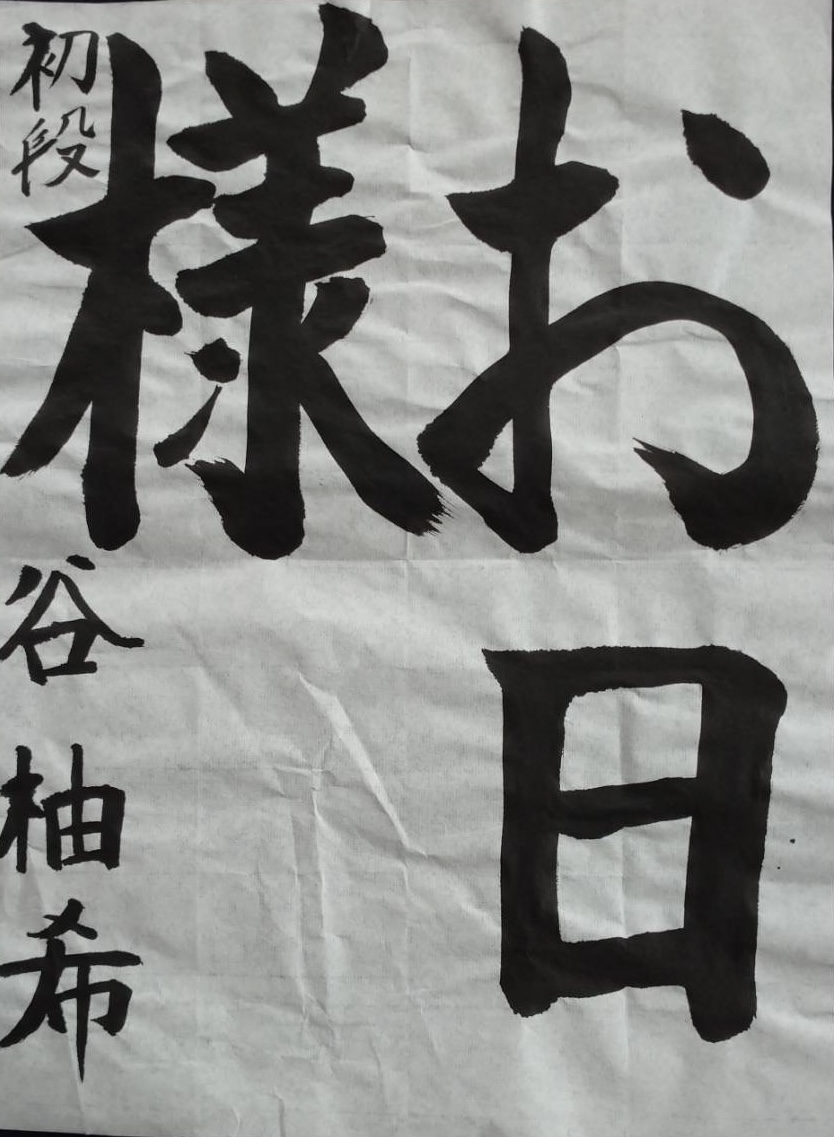 お日
様
初段 谷 柚希